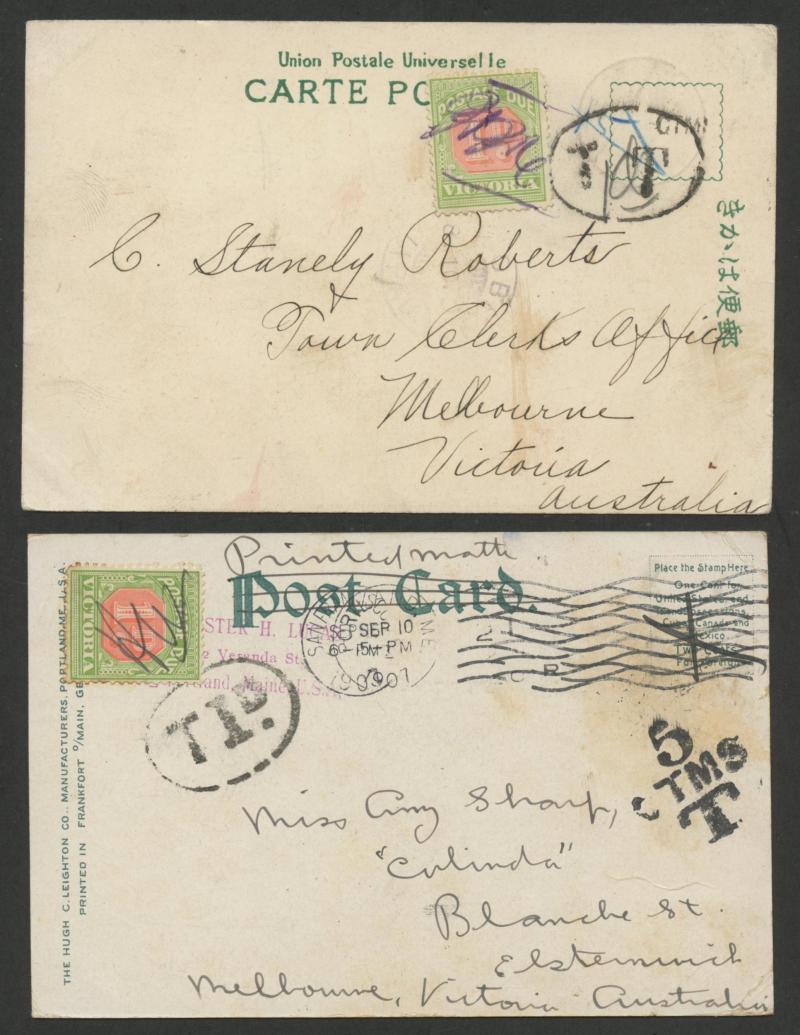 Union Postale Universelle
CARTE PO
POSTAGE DUE
VICTORIA
CTMS
T
きかは便郵
C. Stanely Roberts
Town Clerks Office
Melbourne
Victoria
Australia
Printed matter
Post Card.
Place the Stamp Here
One Cent for
United States and
Island Possessions,
Cuba, Canada and
Mexico.
Two Cents
For Foreign.
POSTAGE DUE
1D
VICTORIA
ESTER H. LUCAS
Veranda St.
Portland, Maine, U.S.A.
SEP 10
PM
1907
T 1D.
5
CTMS
T
THE HUGH C. LEIGHTON CO., MANUFACTURERS, PORTLAND, ME., U.S.A.
PRINTED IN FRANKFORT O/MAIN, GE
Miss Amy Sharp,
"Culinda"
Blanche St.
Elsternwick
Melbourne, Victoria Australia